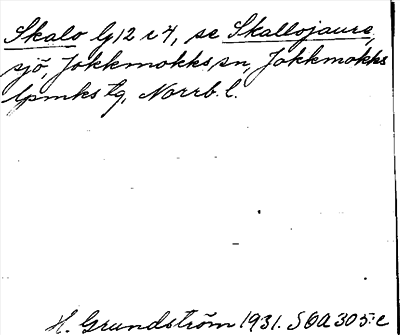 Skalo G12 c 4, se Skallojaure,
sjö, Jokkmokks sn, Jokkmokks
lpmks tg, Norrb. l.
H. Grundström 1931. SOA 305:c